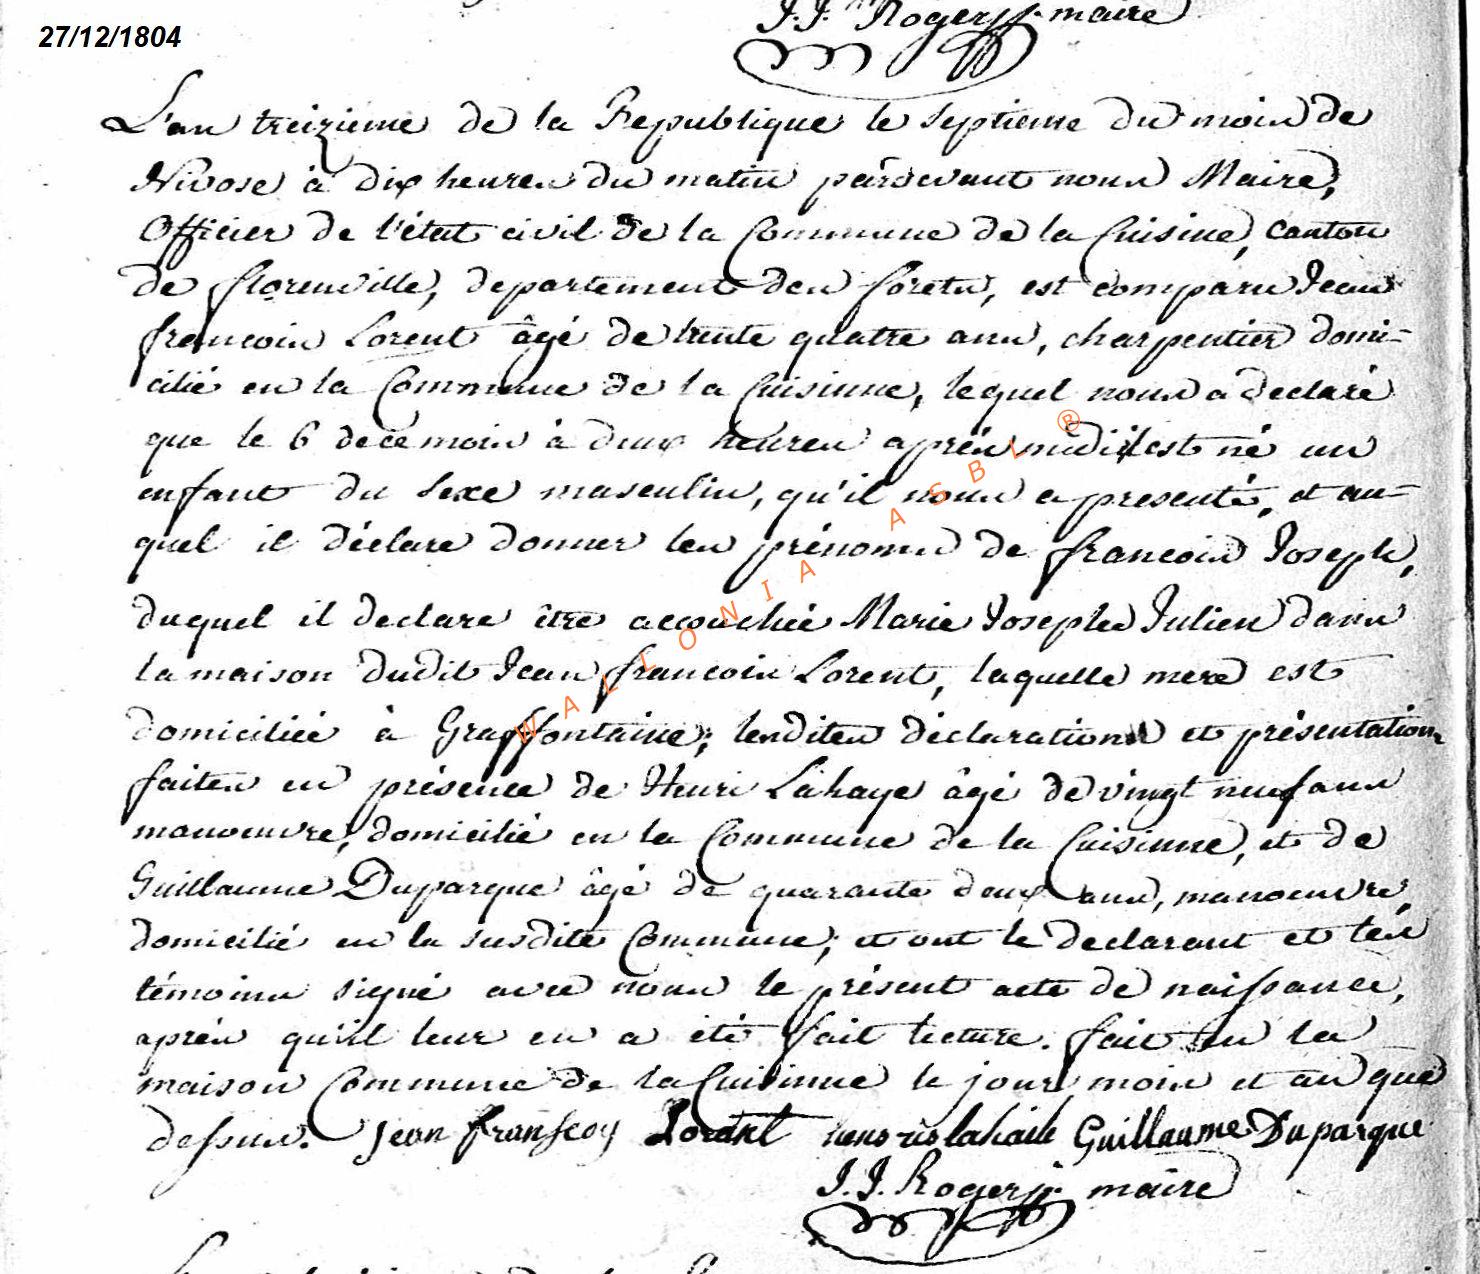 J. J. Roger maire
27/12/1804
L'an treizieme de la Republique le septieme du mois de
Nivose à dix heures du matin pardevant nous Maire,
Officier de l'état civil de la Commune de la Cuisine, canton
de florenville, departement des forets, est comparu Jean
francois Lorent âgé de trente quatre ans, charpentier domi-
cilié en la Commune de la Cuisinne, lequel nous a declaré
que le 6 de ce mois à deux heures après midi il est né un
enfant du sexe masculin, qu'il nous a presenté, et au-
quel il déclare donner les prénoms de francois Joseph,
duquel il declare être accouchée Marie Josephe Julien dans
la maison dudit Jean francois Lorent, laquelle mere est
domiciliée à Graffontaine; lesdites déclarations et présentation
faites en présence de Henri Lahaye âgé de vingt neuf ans
manoeuvre, domicilié en la Commune de la Cuisinne, et de
Guillaume Duparque âgé de quarante deux ans, manoeuvre,
domicilié en la susdite Commune; et ont le declarant et les
témoins signé avec nous le présent acte de naissance,
après qu'il leur en a été fait lecture. fait en la
maison Commune de la Cuisinne le jour mois et an que
dessus. Jean franscoy Lorent lahaile Guillaume Duparque
J. J. Roger maire
WALLONIA ASBL ®